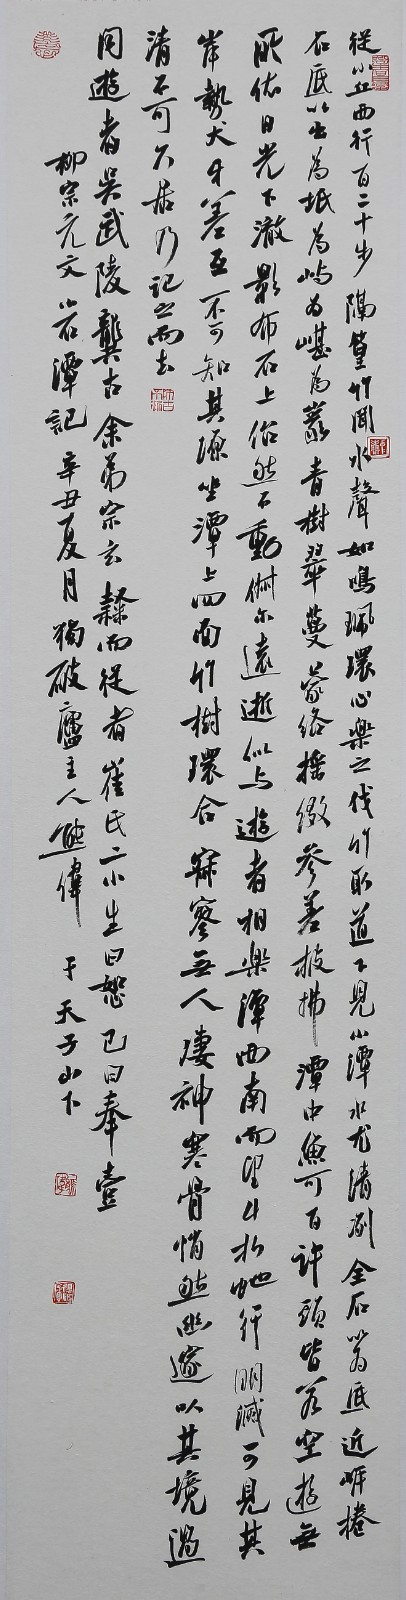 從小丘西行百二十步隔篁竹聞水聲如鳴珮環心樂之伐竹取道下見小潭水尤清冽全石以為底近岸捲
石底以出為坻為嶼為嵁為巖青樹翠蔓蒙絡搖綴參差披拂潭中魚可百許頭皆若空遊無
所依日光下澈影布石上佁然不動俶尔遠逝似與遊者相樂潭西南而望斗折蛇行明滅可見其
岸勢犬牙差互不可知其源坐潭上四面竹樹環合寂寥無人淒神寒骨悄然幽邃以其境過
清不可久居乃記之而去
同遊者吳武陵龔古余弟宗玄隸而從者崔氏二小生曰恕己曰奉壹
柳宗元文小石潭記辛丑夏月獨破廬主人熊偉于天子山下